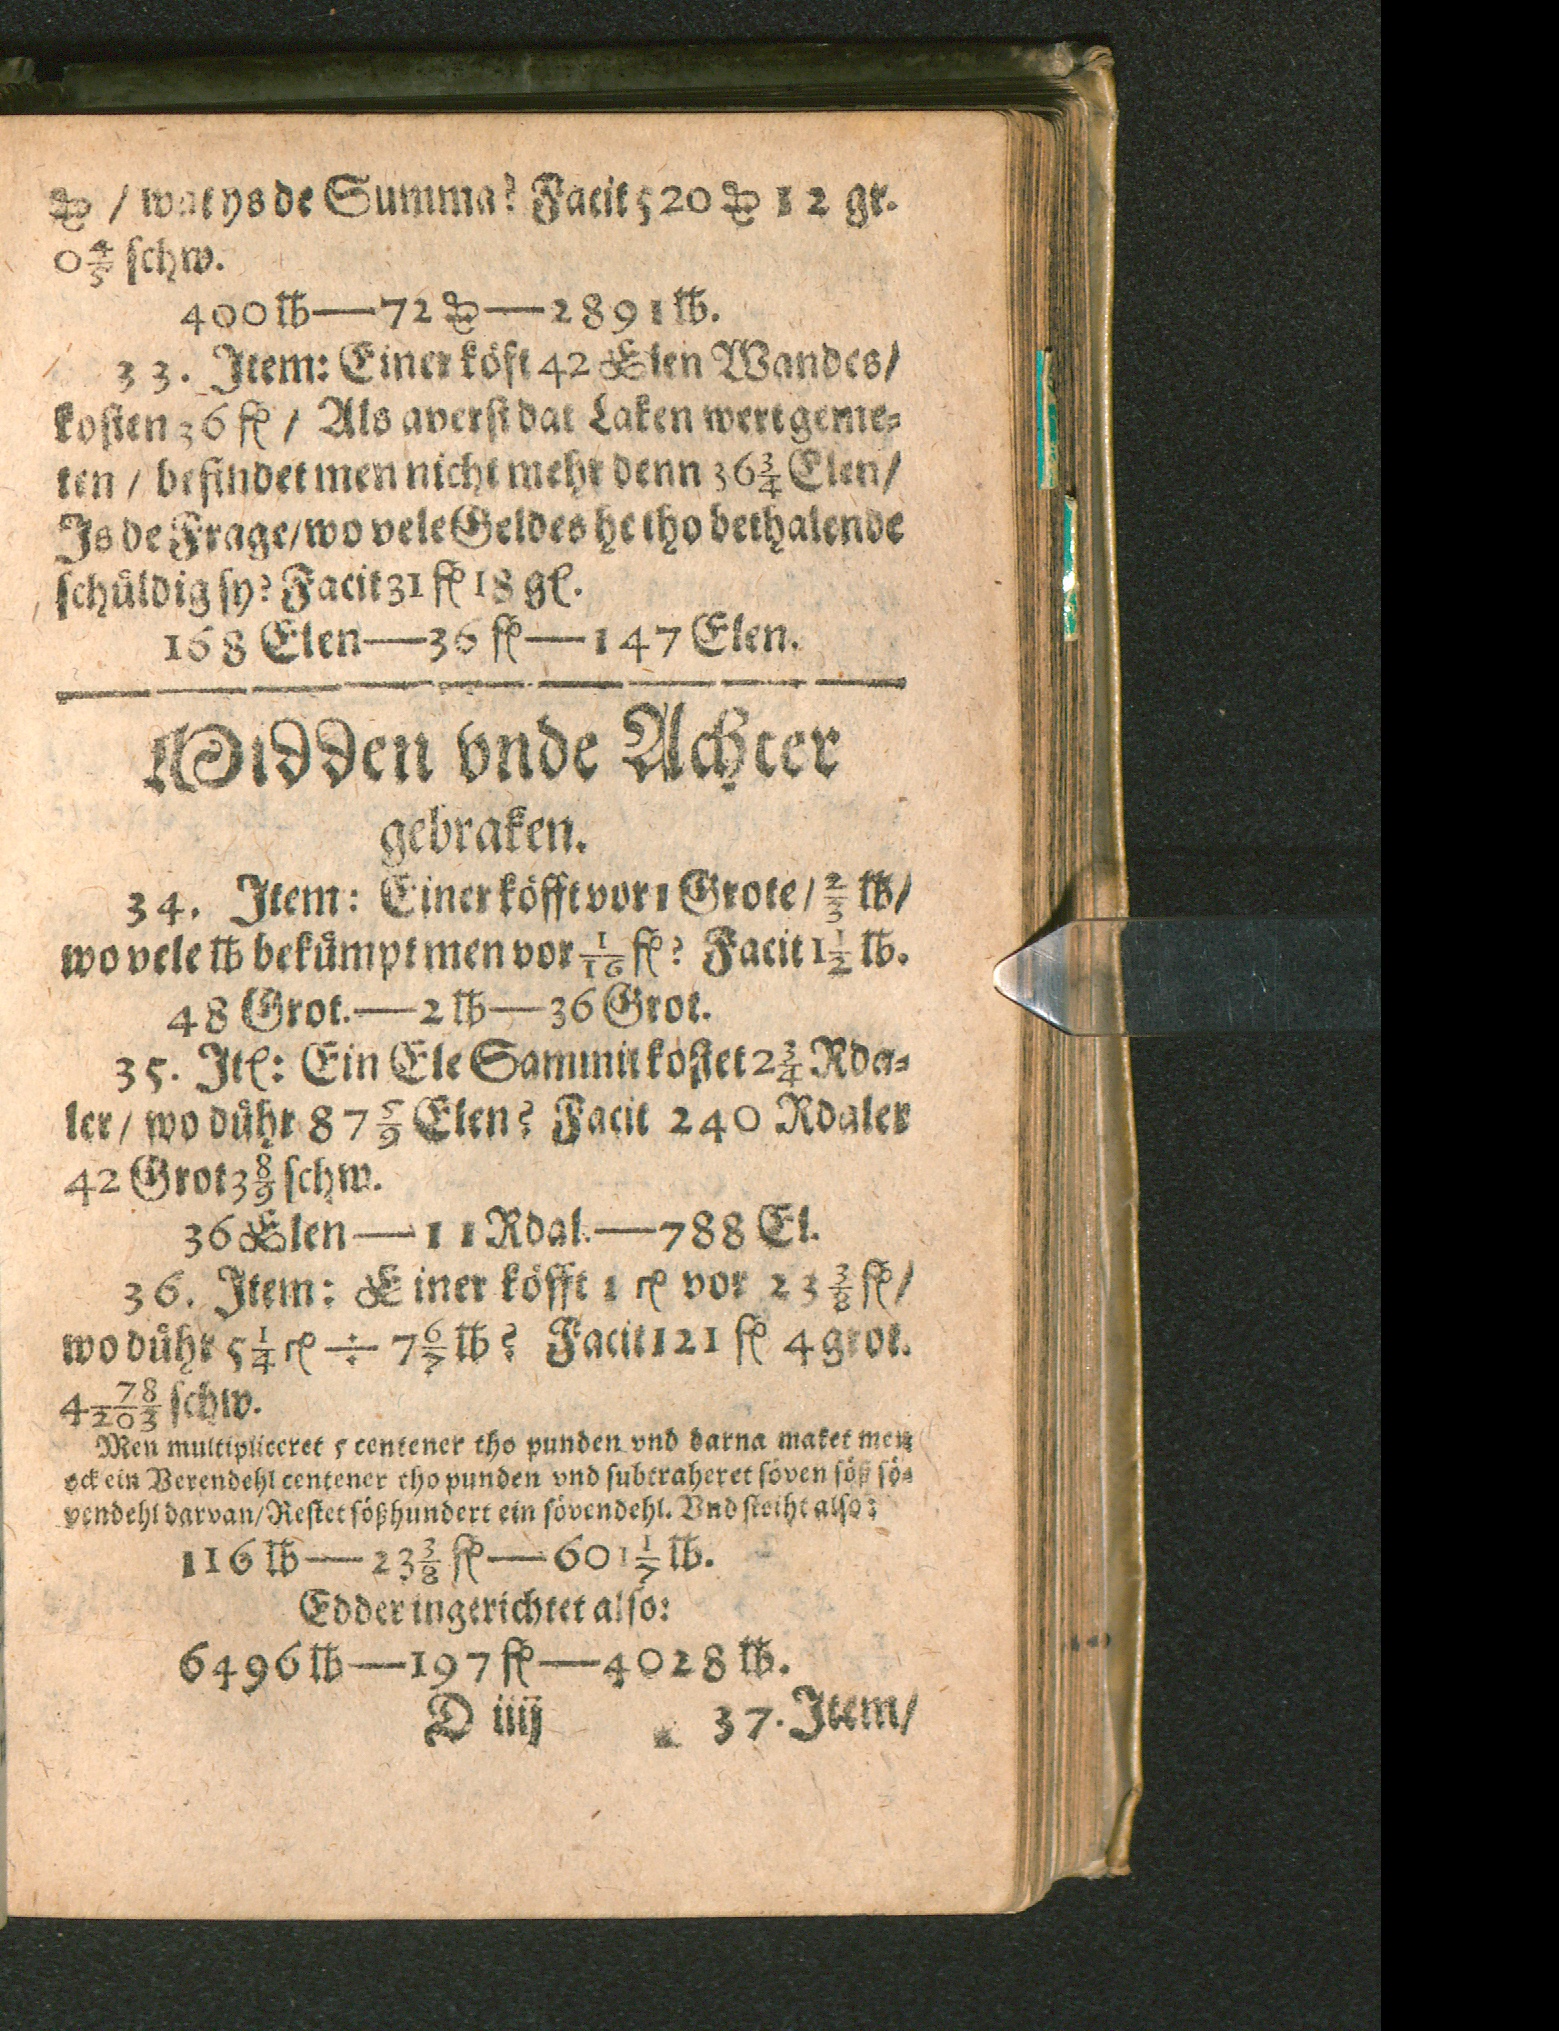 ꝏ / wat ys de Summa? Facit 520 ꝏ 12 gr.
0 4/5 schw.
400 lb—72 ꝏ—2891 lb.
33. Item: Einer köft 42 Elen Wandes/
kosten 36 fl / Als averst dat Laken wert geme⸗
ten / befindet men nicht mehr denn 36 3/4 Elen/
Is de Frage/wo vele Geldes he tho bethalende
schůldig sy? Facit 31 fl 18 gl.
168 Elen—36 fl—147 Elen.
Midden vnde Achter
gebraken.
34. Item: Einer köfft vor 1 Grote / 2/3 lb/
wo vele lb bekůmpt men vor 1/16 fl? Facit 1 1/2 lb.
48 Grot.—2 lb—36 Grot.
35. Itl: Ein Ele Sammit kostet 2 3/4 Rda⸗
ler/ wo důhr 87 5/9 Elen? Facit 240 Rdaler
42 Grot 3 8/9 schw.
36 Elen—11 Rdal.—788 El.
36. Item: Einer köfft 1 cl vor 23 3/8 fl/
wo důhr 5 1/4 cl ÷ 7 6/7 lb? Facit 121 fl 4 grot.
4 78/203 schw.
Men multipliceret 5 centener tho punden vnd darna maket men
ock ein Verendehl centener tho punden vnd subtraheret söven söß sö⸗
vendehl darvan/Restet sößhundert ein sövendehl. Vnd steiht also:
116 lb—23 3/8 fl—601 1/7 lb.
Edder ingerichtet also:
6496 lb—197 fl—4028 lb.
D iiij 37. Item/